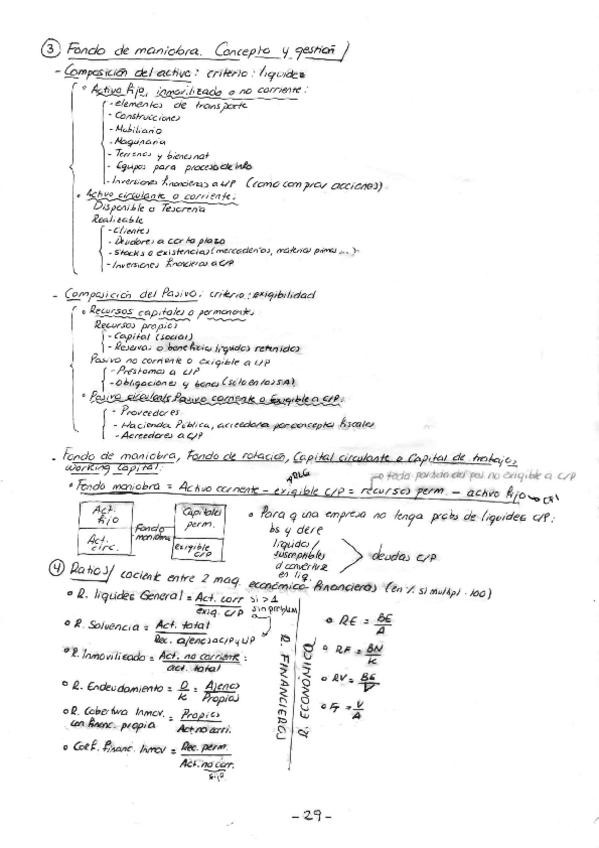 ③ Fondo de maniobra. Concepto y gestión
- Composición del activo: criterio: liquidez
• Activo fijo, inmovilizado o no corriente:
- elementos de transporte
- Construcciones
- Mobiliario
- Maquinaria
- Terrenos y bienes nat
- Equipos para proceso de info
- Inversiones financieras a L/P (como comprar acciones)
• Activo circulante o corriente:
Disponible o Tesorería
Realizable
- Clientes
- Deudores a corto plazo
- Stocks o existencias (mercaderías, materias primas...)
- Inversiones financieras a C/P
- Composición del Pasivo: criterio: exigibilidad
• Recursos capitales o permanentes
Recursos propios
- Capital (social)
- Reservas o beneficios líquidos retenidos
Pasivo no corriente o exigible a L/P
- Préstamos a L/P
- Obligaciones y bonos (solo en las SA)
• Pasivo circulante Pasivo corriente o Exigible a C/P:
- Proveedores
- Hacienda Pública, acreedora por conceptos fiscales
- Acreedores a C/P
- Fondo de maniobra, Fondo de rotación, Capital circulante o Capital de trabajo,
working capital:
toda partida del pas. no exigible a C/P
• Fondo maniobra = Activo corriente - exigible C/P = recursos perm. - activo fijo
Act. fijo
Act. circ.
Fondo maniobra
Capitales perm.
exigible C/P
• Para q una empresa no tenga probs de liquidez C/P:
bs y dere
líquidos/
susceptibles
d convertirse
en liq.
deudas C/P
④ Ratios/ cociente entre 2 mag. económico-financieras (en % si multipl. 100)
• R. liquidez General = Act. corr / exig. C/P si > 1 sin problem
• R. Solvencia = Act. total / Rec. ajenos a C/P y L/P
• R. Inmovilizado = Act. no corriente / act. total
• R. Endeudamiento = D / K = Ajenos / Propios
• R. Cobertura Inmov. con financ. propia = Propios / Act no corri.
• Coef. financ. Inmov = Rec. perm. / Act. no corr.
R. FINANCIEROS
R. ECONÓMICA
• RE = BE / A
• RF = BN / K
• RV = BE / V
• = V / A
- 29 -